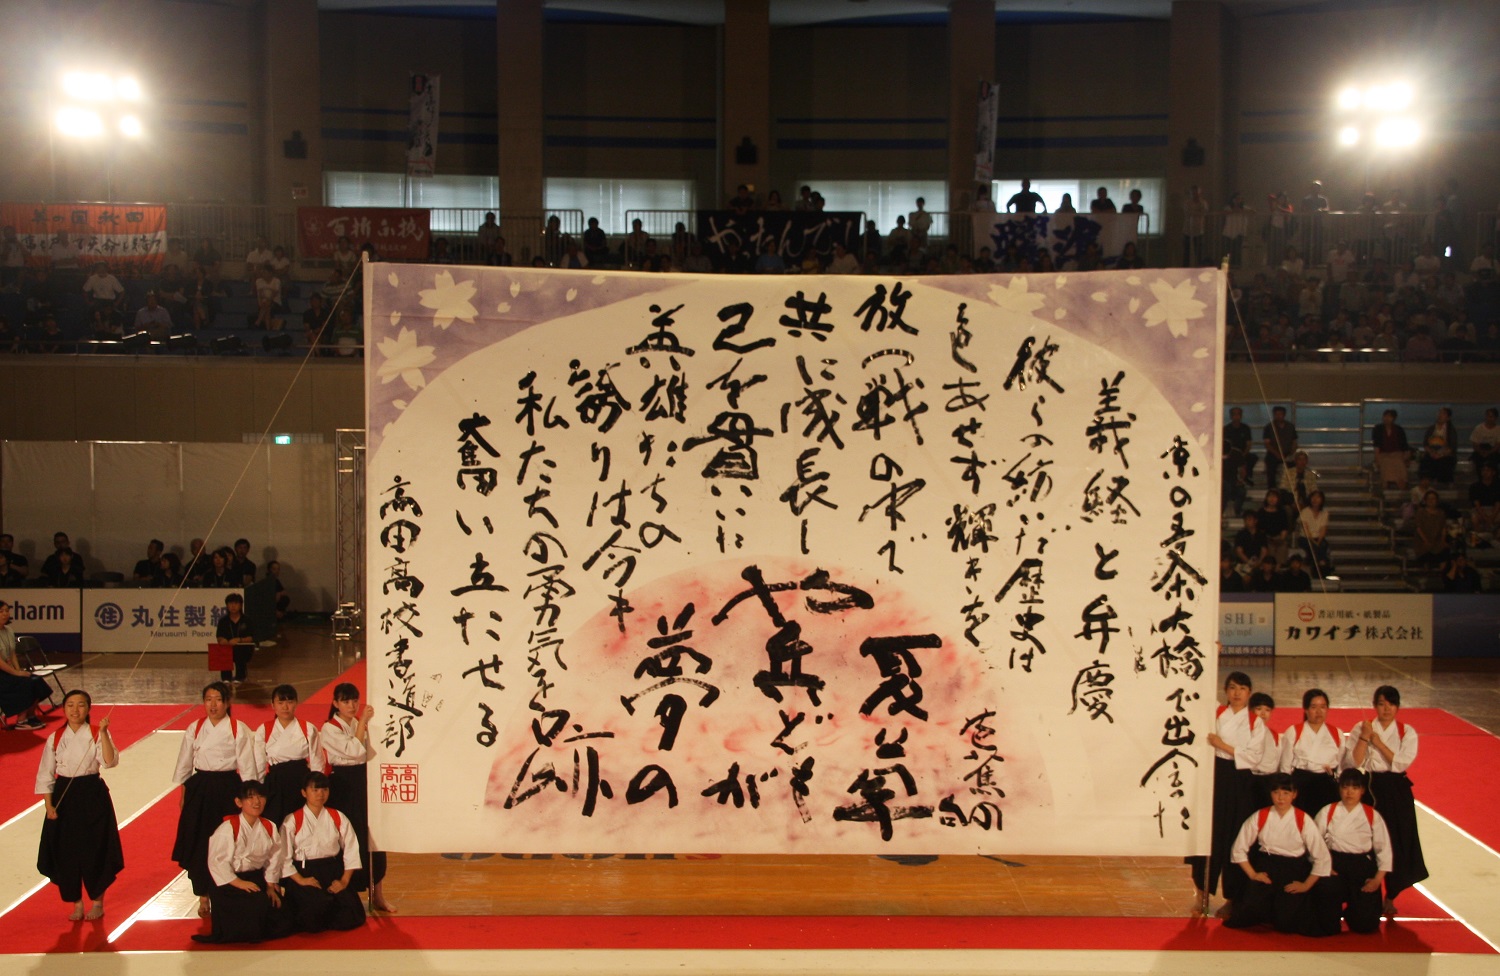 京の五条大橋で出会った
義経と弁慶
彼らの紡いだ歴史は
色あせず輝きを
放つ戦の中で
共に成長し
己を貫いた
英雄たちの
誇りは今も
私たちの勇気を
奮い立たせる
夏草
や兵ども
が
夢の
跡
芭蕉の句
高田高校書道部
高田
高校
百折不撓
やったんでい
美の国秋田
charm
丸住製紙
Marusumi Paper
SHI
書道用紙・紙製品
カワイチ株式会社